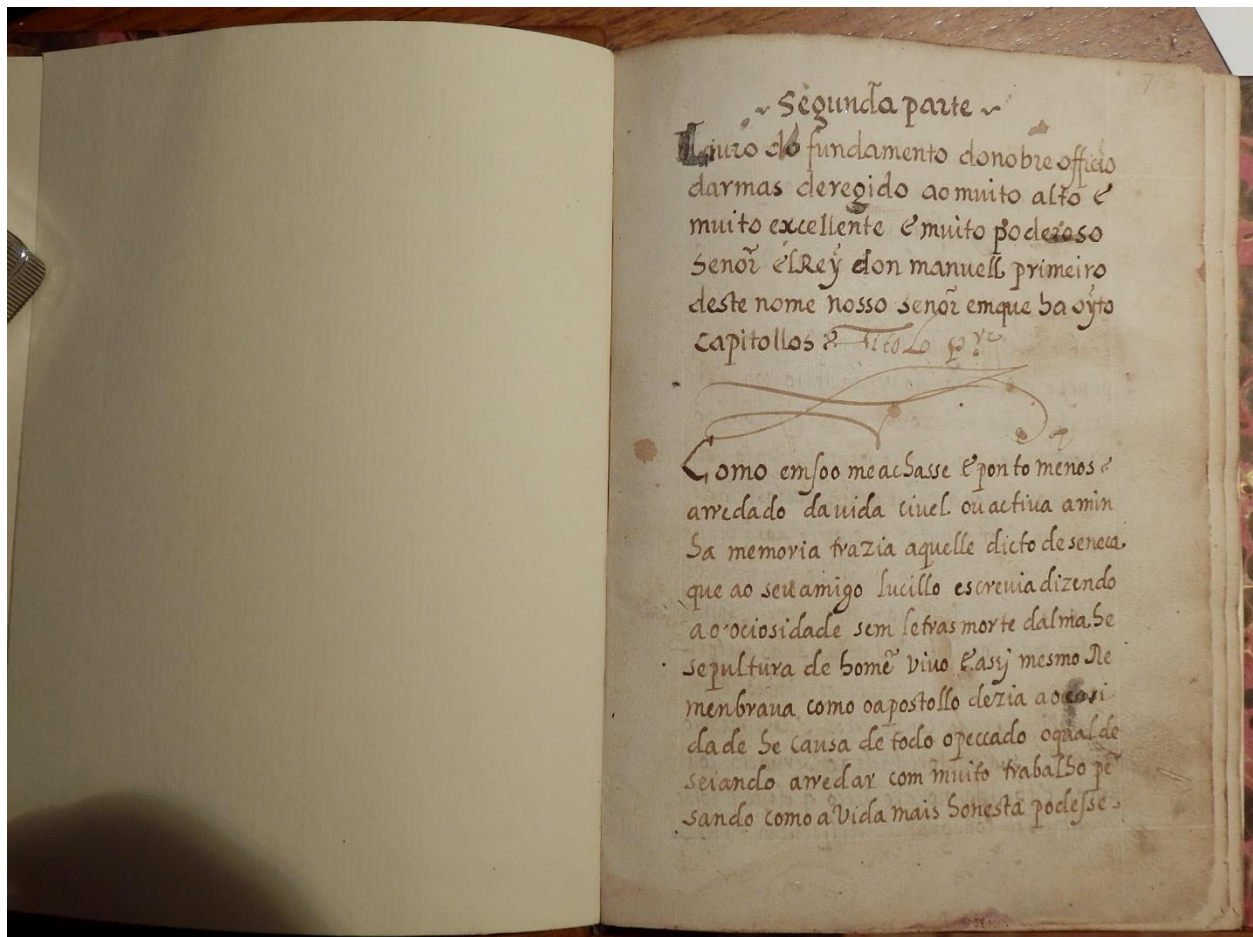 ~ Segunda parte ~
Liuro do fundamento donobre officio
darmas deregido ao muito alto e
muito excellente e muito poderoso
Senor elRey don manuell primeiro
deste nome nosso senor emque ha oyto
capitollos & Titolo pro
Como emsoo meachasse e ponto menos e
arredado da uida ciuel ou actiua a min
ha memoria trazia aquelle dicto de seneca
que ao seu amigo lucillo escreuia dizendo
a ociosidade sem letras morte dalma he
sepultura de homẽ viuo e assj mesmo Re
menbraua como oapostollo dezia a ocosi
dade he causa de todo opeccado oqual de
seiando arredar com muito trabalho pẽ
sando como a vida mais honesta podesse